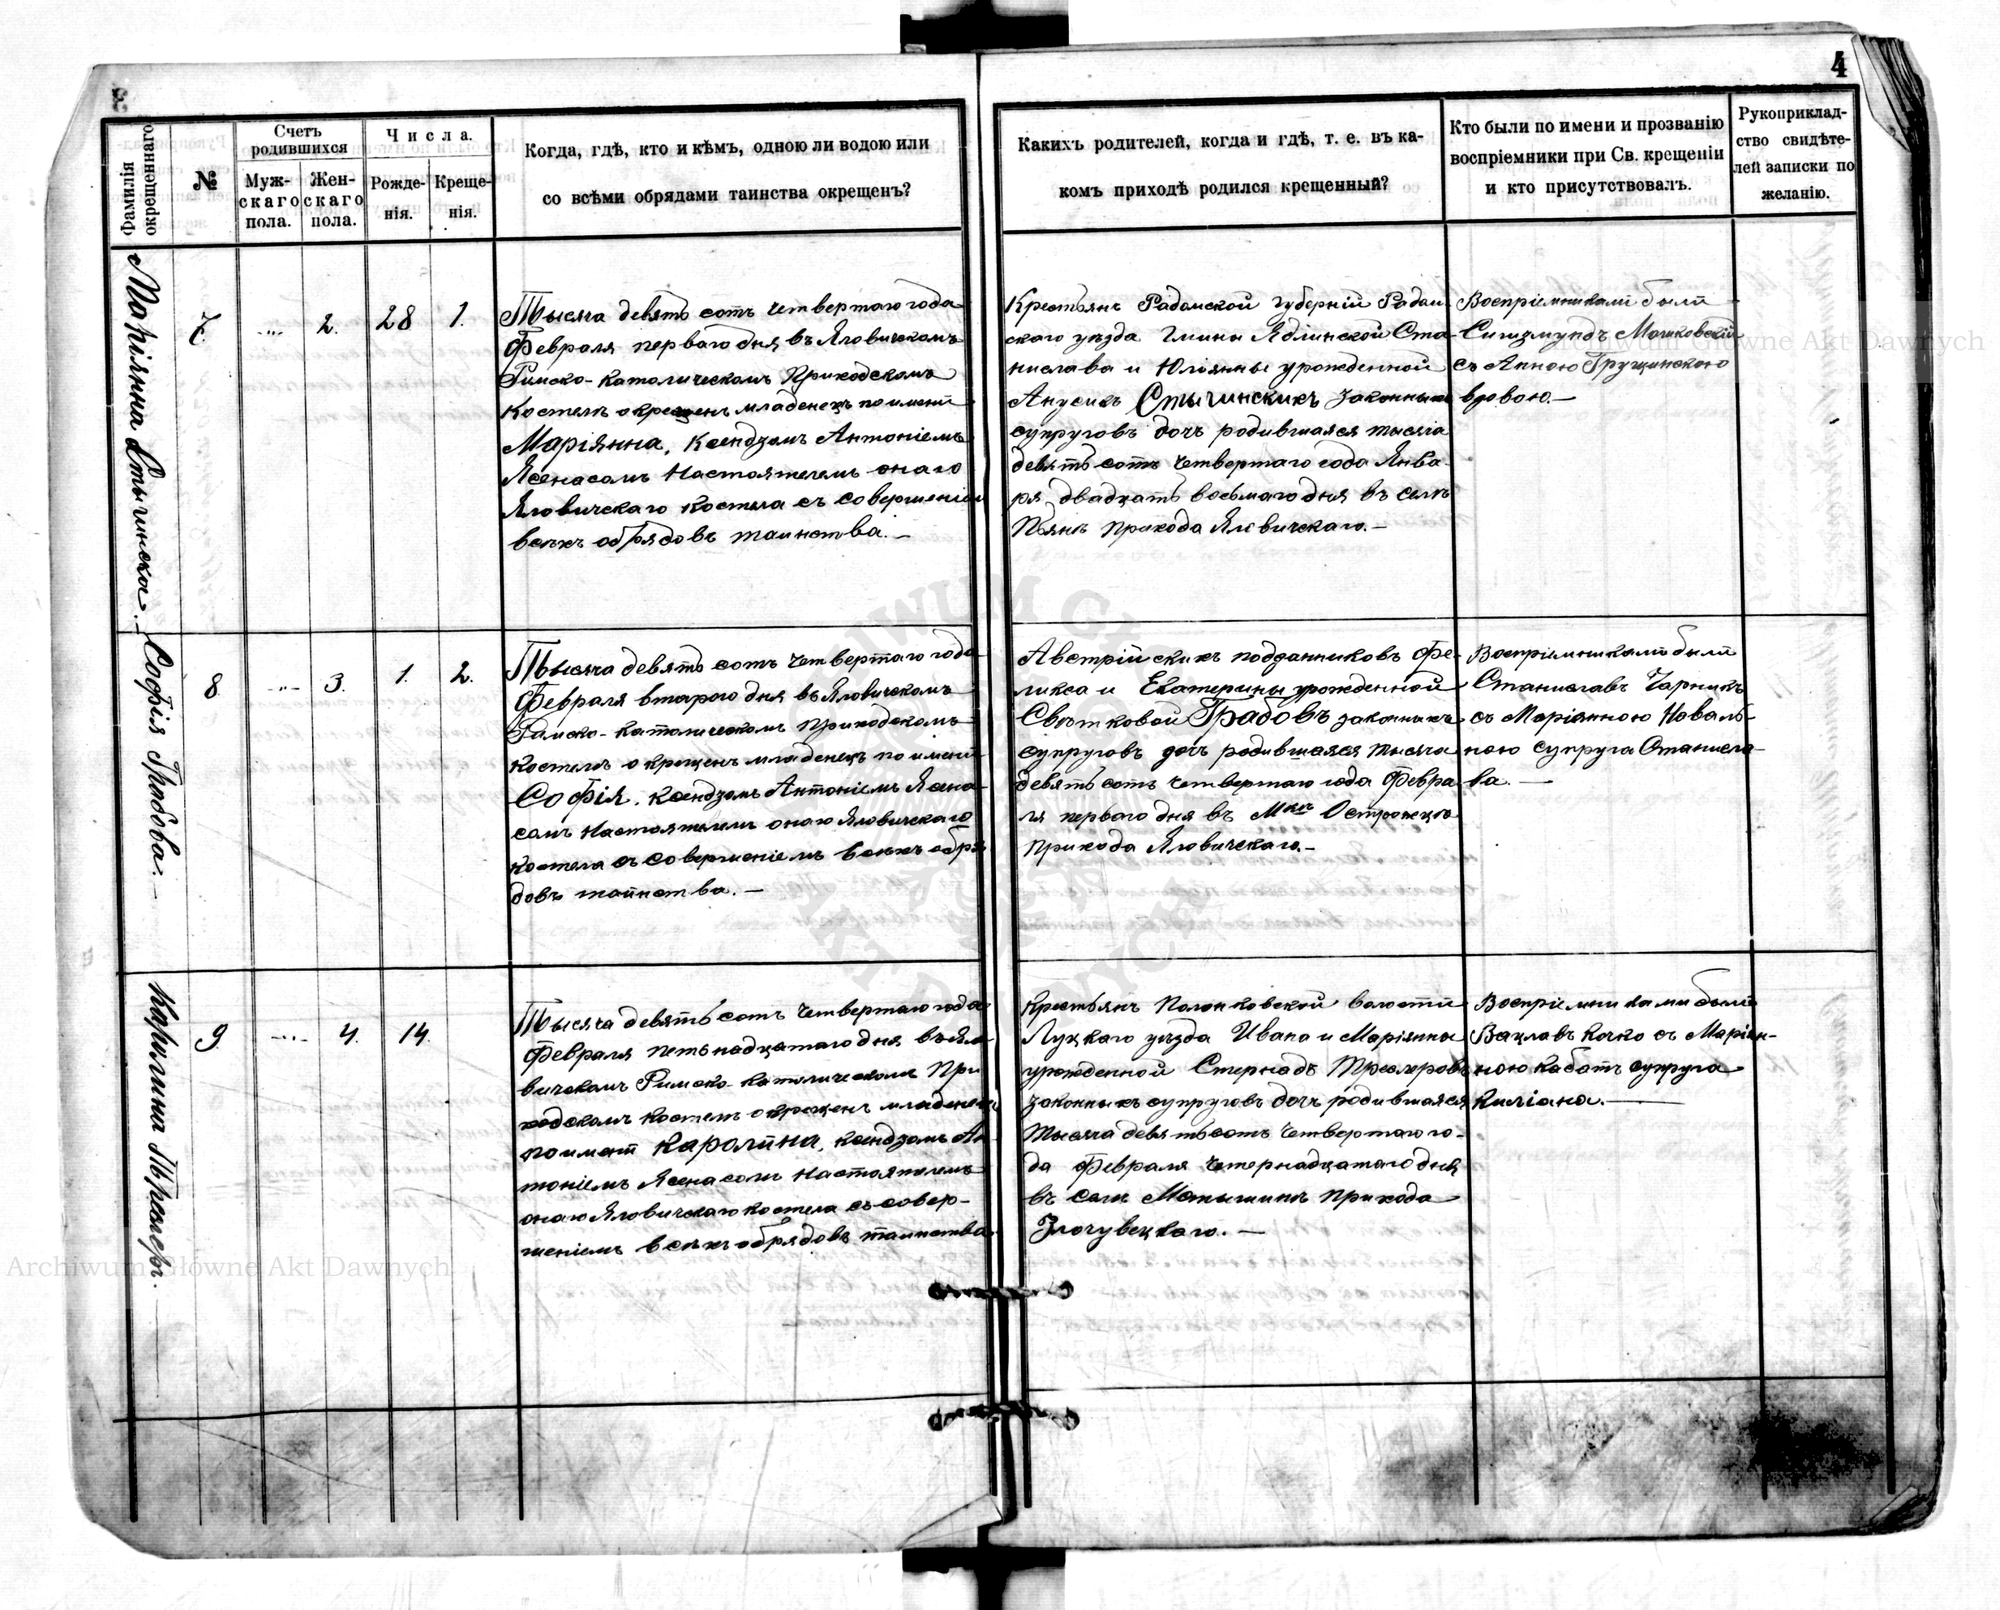 4
Фамилія окрещеннаго.
№
Счетъ родившихся
Муж-
скаго
пола.
Жен-
скаго
пола.
Числа.
Рожде-
нія.
Креще-
нія.
Когда, гдѣ, кто и кѣмъ, одною ли водою или
со всѣми обрядами таинства окрещенъ?
Какихъ родителей, когда и гдѣ, т. е. въ ка-
комъ приходѣ родился крещенный?
Кто были по имени и прозванію
воспріемники при Св. крещеніи
и кто присутствовалъ.
Рукоприклад-
ство свидѣте-
лей записки по
желанію.
Маріянна Стычинска.
7.
2.
28
1.
Тысяча девять сотъ четвертаго года
Февраля перваго дня въ Яловичскомъ
Римско-католическомъ Приходскомъ
костелѣ окрещенъ младенецъ по имени
Маріянна, ксендзомъ Антоніемъ
Ясенасомъ Настоятелемъ онаго
Яловичскаго костела съ совершеніемъ
всѣхъ обрядовъ таинства.—
Крестьянъ Радомской губерніи Радом-
скаго уѣзда Гмины Яблинской Ста-
нислава и Юліянны урожденной
Анусикъ Стычинскихъ законныхъ
супруговъ дочь родившаяся тысяча
девять сотъ четвертаго года Янва-
ря двадцать восьмаго дня въ селѣ
Пьянѣ прихода Яловичскаго.—
Воспріемниками были
Сигизмундъ Машковскій
съ Анною Грущинскою
вдовою.—
Софія Грабова.—
8.
3.
1.
2.
Тысяча девять сотъ четвертаго года
Февраля втораго дня въ Яловичскомъ
Римско-католическомъ Приходскомъ
костелѣ окрещенъ младенецъ по имени
Софія, ксендзомъ Антоніемъ Ясена-
сомъ Настоятелемъ онаго Яловичскаго
костела съ совершеніемъ всѣхъ обря-
довъ таинства.—
Австрійскихъ подданниковъ Фе-
ликса и Екатерины урожденной
Свѣтковой Грабовъ законныхъ
супруговъ дочь родившаяся тысяча
девять сотъ четвертаго года Февра-
ля перваго дня въ Мкѣ Острожцѣ
прихода Яловичскаго.—
Воспріемниками были
Станиславъ Чарникъ
съ Маріянною Коваль-
ною супруга Станисла-
ва.—
Каролина Треглеръ.—
9.
4.
14.
Тысяча девять сотъ четвертаго года
Февраля пятьнадцатаго дня въ Яло-
вичскомъ Римско-католическомъ При-
ходскомъ костелѣ окрещенъ младенецъ
по имени Каролина, ксендзомъ Ан-
тоніемъ Ясенасомъ Настоятелемъ
онаго Яловичскаго костела съ совер-
шеніемъ всѣхъ обрядовъ таинства.
Крестьянъ Полонковской волости
Луцкаго уѣзда Ивана и Маріянны
урожденной Стернадъ
законныхъ супруговъ дочь родившаяся
тысяча девять сотъ четвертаго го-
да Февраля четернадцатаго дня
въ селѣ прихода
Злочувецкаго.—
Воспріемниками были
Вацлавъ Качко съ Маріян-
ною Кабатъ супруга
Киліана.—
Archiwum Główne Akt Dawnych